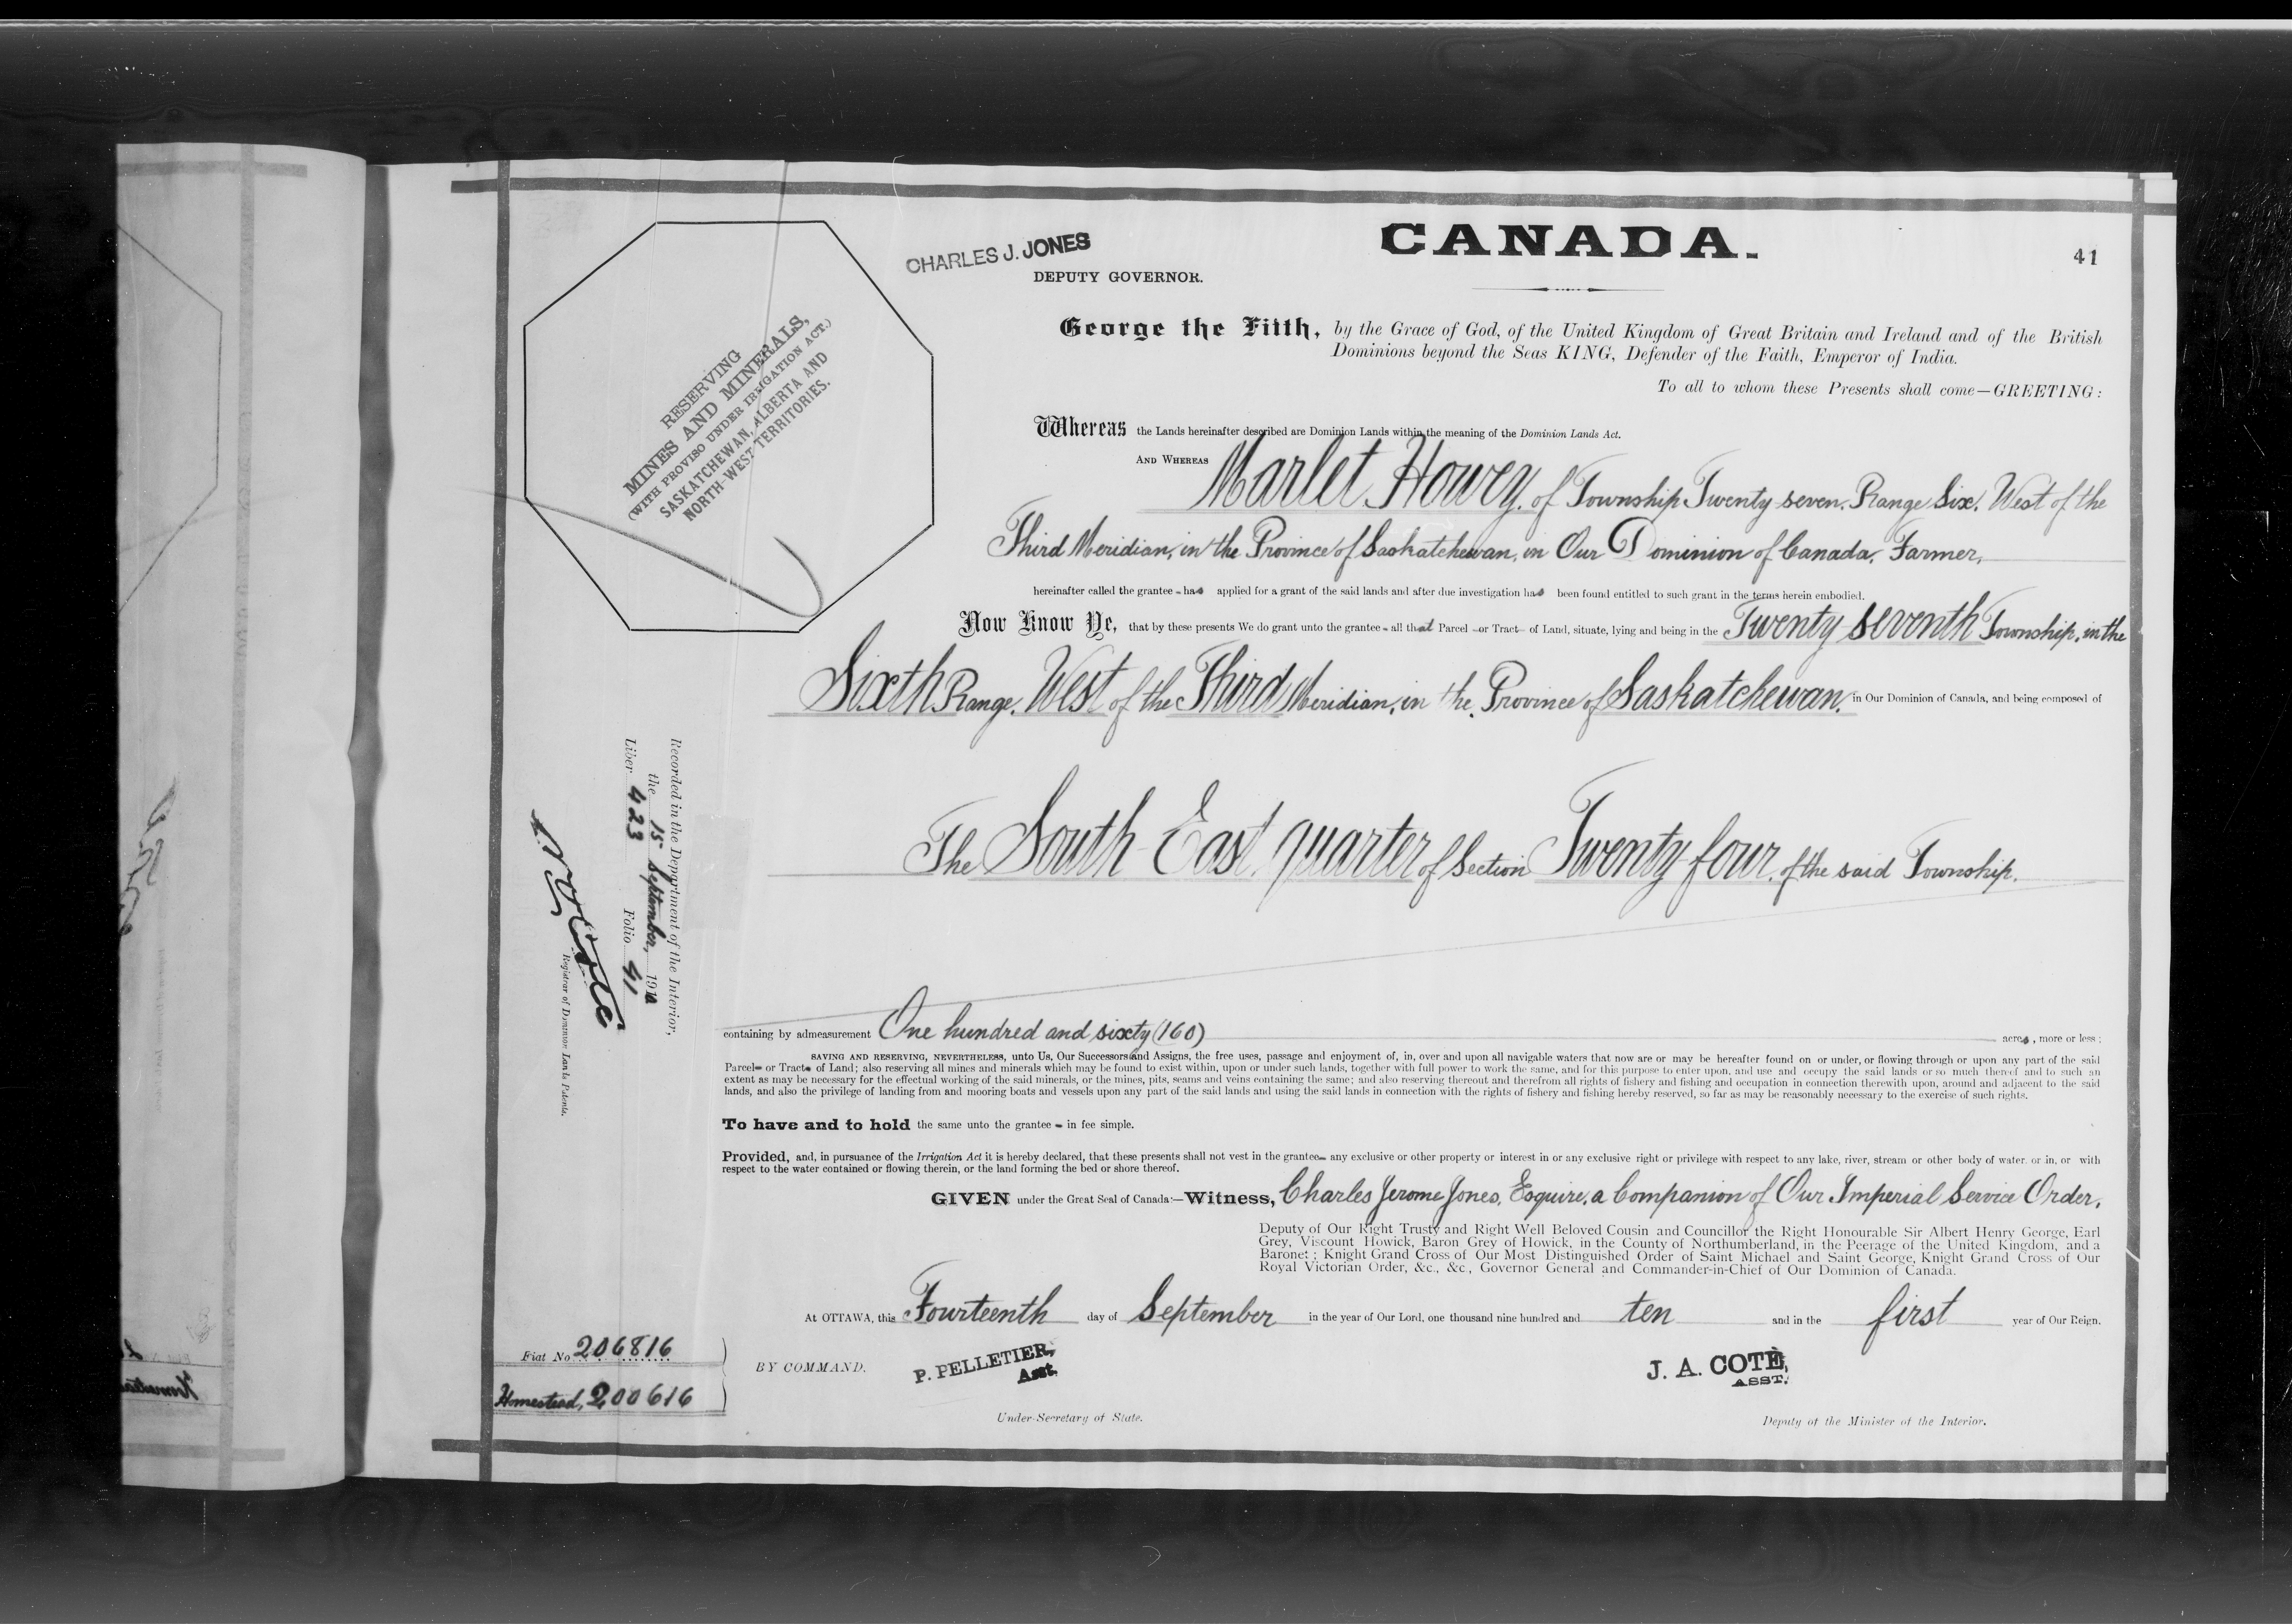 CHARLES J. JONES
DEPUTY GOVERNOR.
CANADA.
41
George the Fifth, by the Grace of God, of the United Kingdom of Great Britain and Ireland and of the British
Dominions beyond the Seas KING, Defender of the Faith, Emperor of India.
To all to whom these Presents shall come—GREETING:
RESERVING
MINES AND MINERALS,
(WITH PROVISO UNDER IRRIGATION ACT.)
SASKATCHEWAN, ALBERTA AND
NORTH-WEST TERRITORIES.
Whereas the Lands hereinafter described are Dominion Lands within the meaning of the Dominion Lands Act.
AND WHEREAS Marlet Howey, of Township Twenty seven, Range Six, West of the
Third Meridian, in the Province of Saskatchewan, in Our Dominion of Canada, Farmer,
hereinafter called the grantee - has applied for a grant of the said lands and after due investigation has been found entitled to such grant in the terms herein embodied.
Now Know Ye, that by these presents We do grant unto the grantee - all that Parcel - or Tract - of Land, situate, lying and being in the Twenty seventh Township, in the
Sixth Range, West of the Third Meridian, in the Province of Saskatchewan, in Our Dominion of Canada, and being composed of
The South East quarter of Section Twenty four, of the said Township.
containing by admeasurement One hundred and sixty (160) acres, more or less;
SAVING AND RESERVING, NEVERTHELESS, unto Us, Our Successors and Assigns, the free uses, passage and enjoyment of, in, over and upon all navigable waters that now are or may be hereafter found on or under, or flowing through or upon any part of the said
Parcel- or Tract- of Land; also reserving all mines and minerals which may be found to exist within, upon or under such lands, together with full power to work the same, and for this purpose to enter upon, and use and occupy the said lands or so much thereof and to such an
extent as may be necessary for the effectual working of the said minerals, or the mines, pits, seams and veins containing the same; and also reserving thereout and therefrom all rights of fishery and fishing and occupation in connection therewith upon, around and adjacent to the said
lands, and also the privilege of landing from and mooring boats and vessels upon any part of the said lands and using the said lands in connection with the rights of fishery and fishing hereby reserved, so far as may be reasonably necessary to the exercise of such rights.
To have and to hold the same unto the grantee - in fee simple.
Provided, and, in pursuance of the Irrigation Act it is hereby declared, that these presents shall not vest in the grantee- any exclusive or other property or interest in or any exclusive right or privilege with respect to any lake, river, stream or other body of water, or in, or with
respect to the water contained or flowing therein, or the land forming the bed or shore thereof.
GIVEN under the Great Seal of Canada:—Witness, Charles Jerome Jones, Esquire, a Companion of Our Imperial Service Order,
Deputy of Our Right Trusty and Right Well Beloved Cousin and Councillor the Right Honourable Sir Albert Henry George, Earl
Grey, Viscount Howick, Baron Grey of Howick, in the County of Northumberland, in the Peerage of the United Kingdom, and a
Baronet; Knight Grand Cross of Our Most Distinguished Order of Saint Michael and Saint George, Knight Grand Cross of Our
Royal Victorian Order, &c., &c., Governor General and Commander-in-Chief of Our Dominion of Canada.
At OTTAWA, this Fourteenth day of September in the year of Our Lord, one thousand nine hundred and ten and in the first year of Our Reign.
BY COMMAND.
P. PELLETIER,
Asst.
Under-Secretary of State.
J. A. COTÉ,
ASST.
Deputy of the Minister of the Interior.
Recorded in the Department of the Interior,
the 15 September, 1910
Liber 423 Folio 41
Registrar of Dominion Lands Patents.
Fiat No 206816
Homestead, 200616